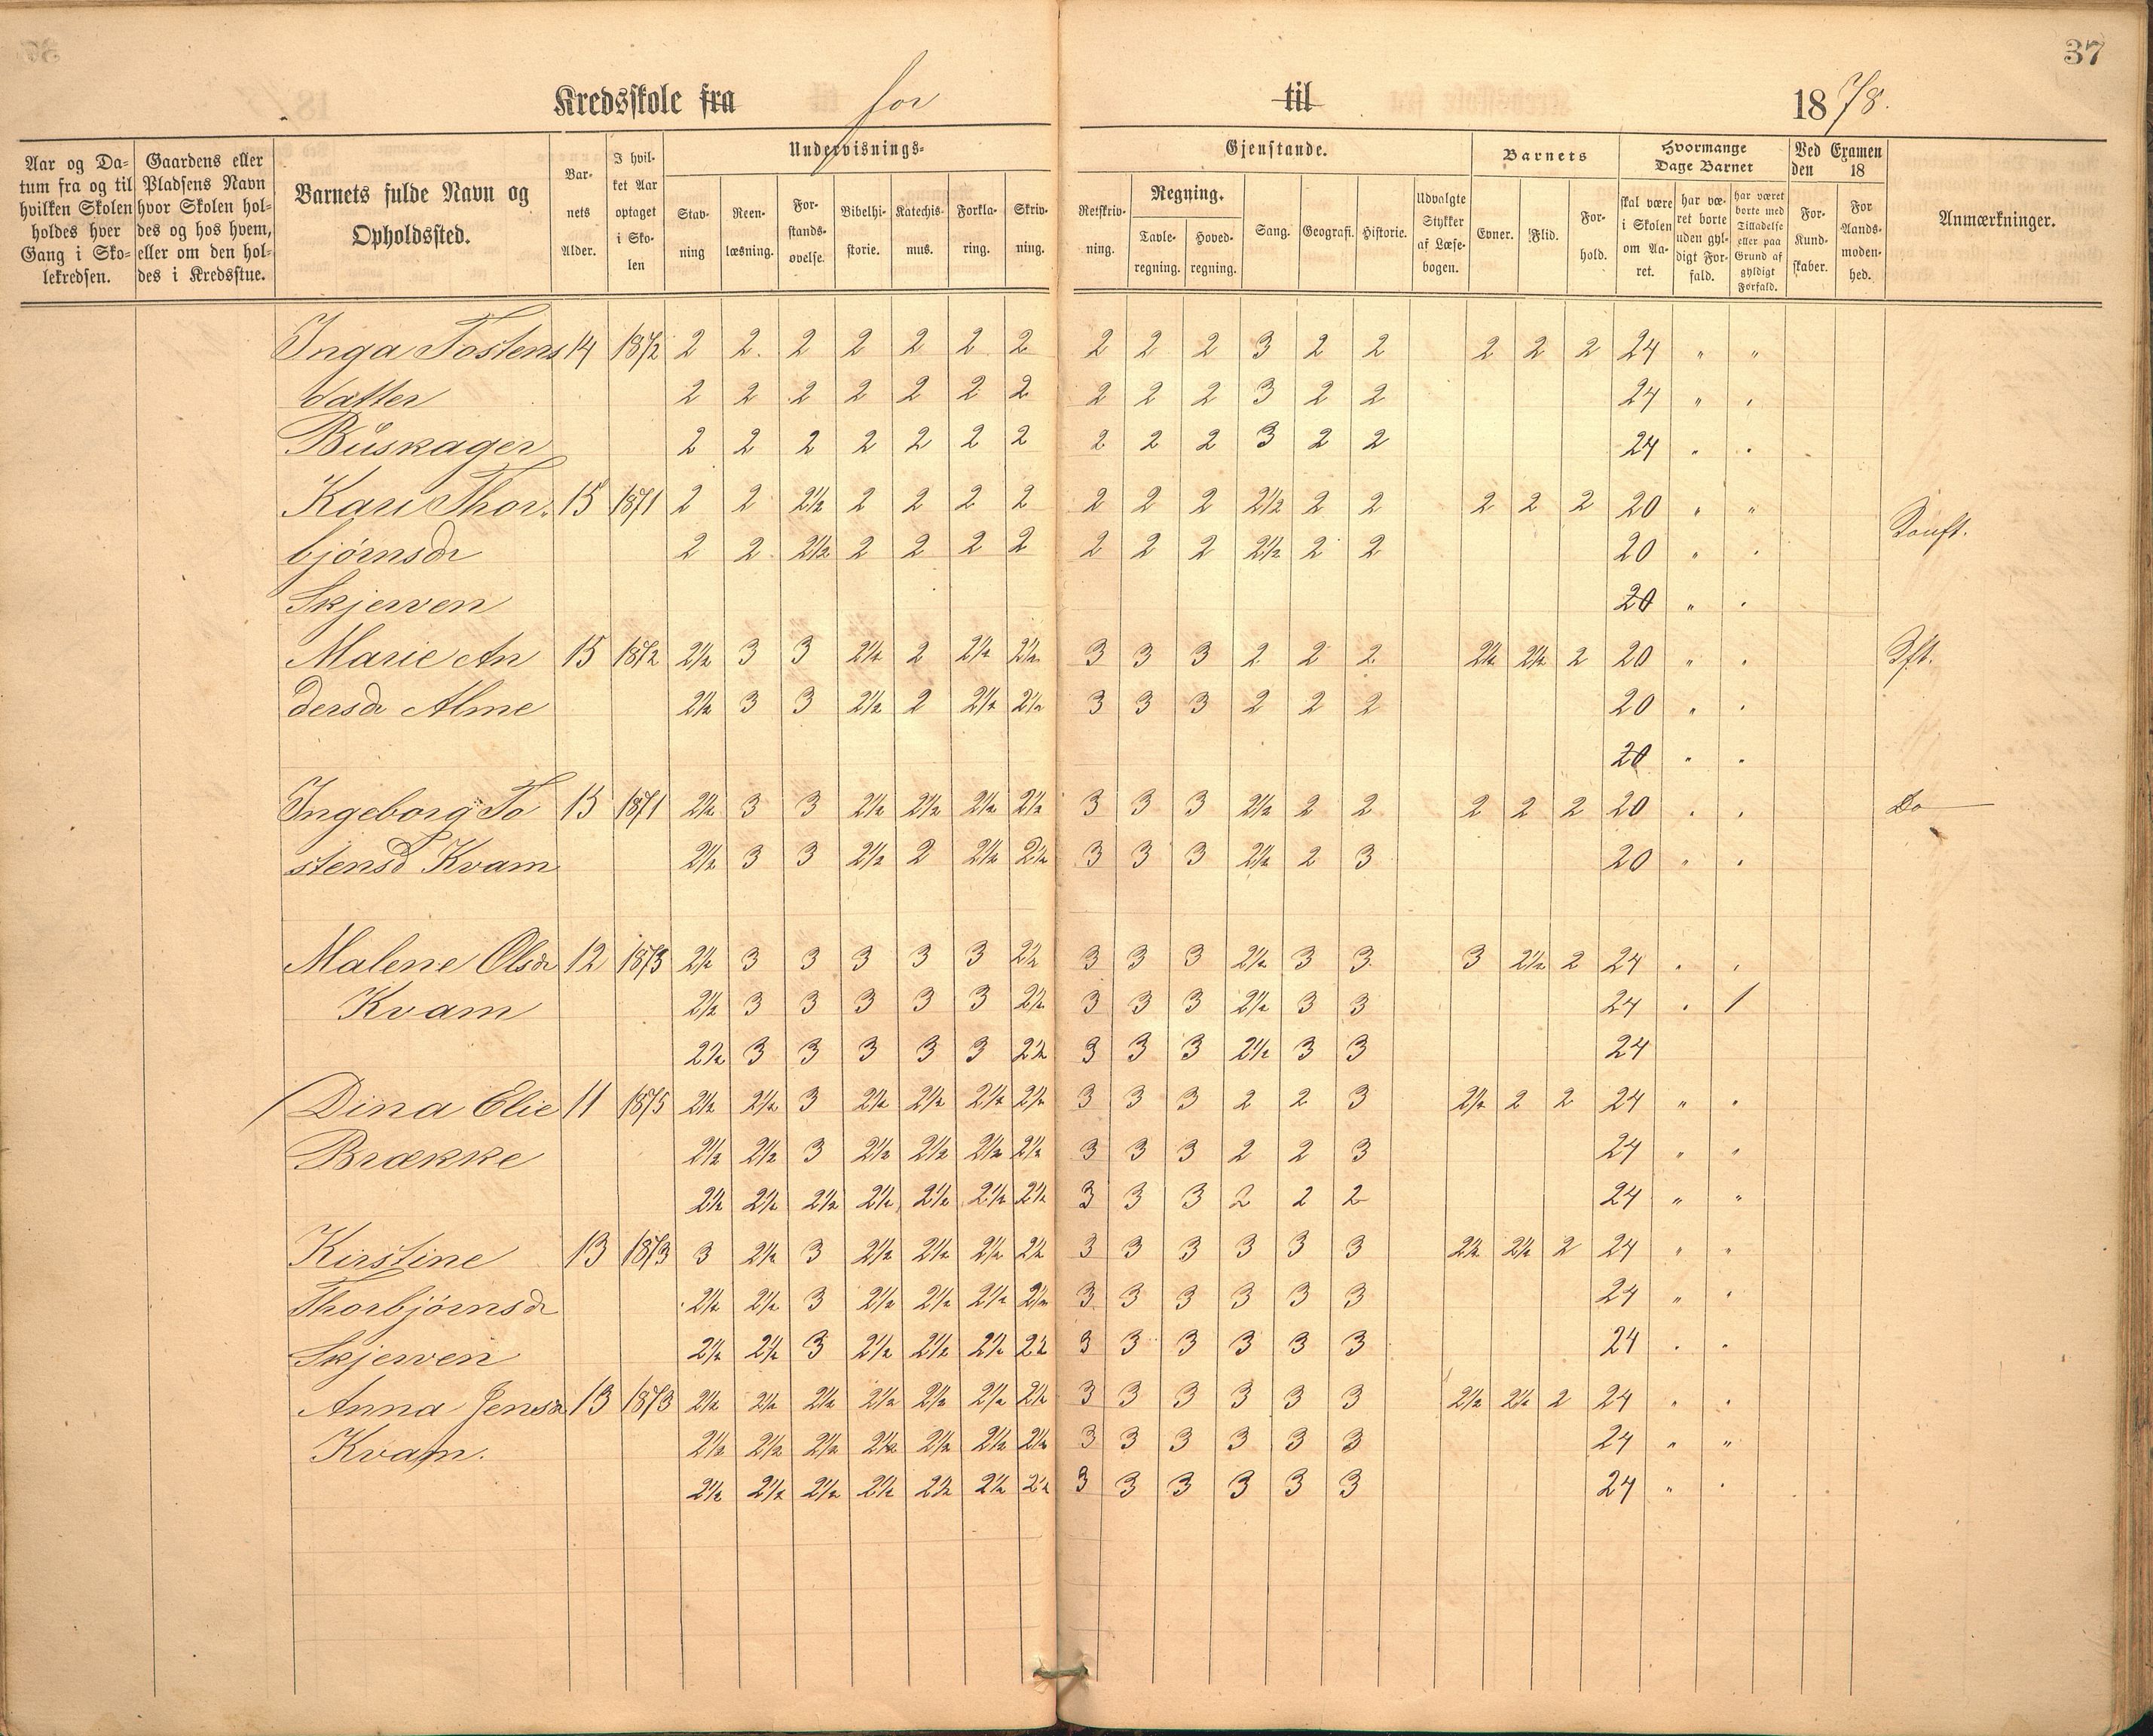 37
Kredsskole fra for til 1878.
Aar og Da= tum fra og til hvilken Skolen holdes hver Gang i Sko= lekredsen.
Gaardens eller Pladsens Navn hvor Skolen hol= des og hos hvem, eller om den hol= des i Kredsstue.
Barnets fulde Navn og Opholdssted.
Bar- nets Alder.
I hvil- ket Aar optaget i Sko- len
Undervisnings= Gjenstande.
Stav- ning
Reen- læsning.
For- stands- øvelse.
Bibelhi- storie.
Katechis- mus.
Forkla- ring.
Skriv- ning.
Retskriv- ning.
Regning.
Tavle- regning.
Hoved- regning.
Sang.
Geografi.
Historie.
Udvalgte Stykker af Læse- bogen.
Barnets
Evner.
Flid.
For- hold.
Hvormange Dage Barnet
skal være i Skolen om Aa- ret.
har væ- ret borte uden gyl- digt For- fald.
har været borte med Tilladelse eller paa Grund af gyldigt Forfald.
Ved Examen den 18
For- Kund- skaber.
For Aands- moden- hed.
Anmærkninger.
Inga Tostens 14 1872 2 2 2 2 2 2 2 2 2 2 3 2 2 2 2 2 24 " "
datter 2 2 2 2 2 2 2 2 2 2 3 2 2 24 " "
Büskager 2 2 2 2 2 2 2 2 2 2 3 2 2 24 " "
Kari Thor. 15 1871 2 2 2½ 2 2 2 2 2 2 2 2½ 2 2 2 2 2 20 " "
bjørnsdr 2 2 2½ 2 2 2 2 2 2 2 2½ 2 2 20 " " Konft.
Skjerven 20 " "
Marie An 15 1872 2½ 3 3 2½ 2 2½ 2½ 3 3 3 2 2 2 2½ 2½ 2 20 " "
dersdr Alme 2½ 3 3 2½ 2 2½ 2½ 3 3 3 2 2 2 20 " "
20 " "
Ingeborg To 15 1871 2½ 3 3 2½ 2½ 2½ 2½ 3 3 3 2½ 2 2 2 2 2 20 " " Do
stensd Kvam 2½ 3 3 2½ 2 2½ 2½ 3 3 3 2½ 2 3 20 " "
Malene Olsdr 12 1873 2½ 3 3 3 3 3 2½ 3 3 3 2½ 3 3 3 2½ 2 24 " "
Kvam 2½ 3 3 3 3 3 2½ 3 3 3 2½ 3 3 24 " 1
2½ 3 3 3 3 3 2½ 3 3 3 2½ 3 3 24
Dina Elie 11 1875 2½ 2½ 3 2½ 2½ 2½ 2½ 3 3 3 2 2 3 2½ 2 2 24 " "
Brække 2½ 2½ 3 2½ 2½ 2½ 2½ 3 3 3 2 2 3 24 " "
2½ 2½ 2½ 2½ 2½ 2½ 2½ 3 3 3 2 2 2 24 " "
Kirstine 13 1873 3 2½ 3 2½ 2½ 2½ 2½ 3 3 3 3 3 3 2½ 2½ 2 24 " "
Thorbjørnsdr 2½ 2½ 3 2½ 2½ 2½ 2½ 3 3 3 3 3 3 24 " "
Skjerven 2½ 2½ 3 2½ 2½ 2½ 2½ 3 3 3 3 3 3 24 " "
Anna Jensdr 13 1873 2½ 2½ 2½ 2½ 2½ 2½ 2½ 3 3 3 3 3 3 2½ 2½ 2 24 " "
Kvam. 2½ 2½ 2½ 2½ 2½ 2½ 2½ 3 3 3 3 3 3 24 " "
2½ 2½ 2½ 2½ 2½ 2½ 2½ 3 3 3 3 3 3 24 " "